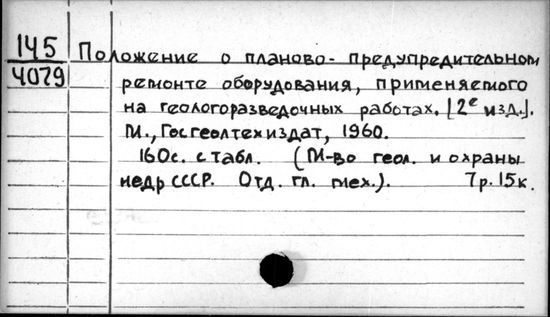 145
4079
Положение о планово- предупредительном
ремонте оборудования, применяемого
на геологоразведочных работах. [2е изд.].
М., Госгеолтехиздат, 1960.
160с. с табл. (М-во геол. и охраны
недр СССР. Отд. гл. мех.). 7р. 15к.